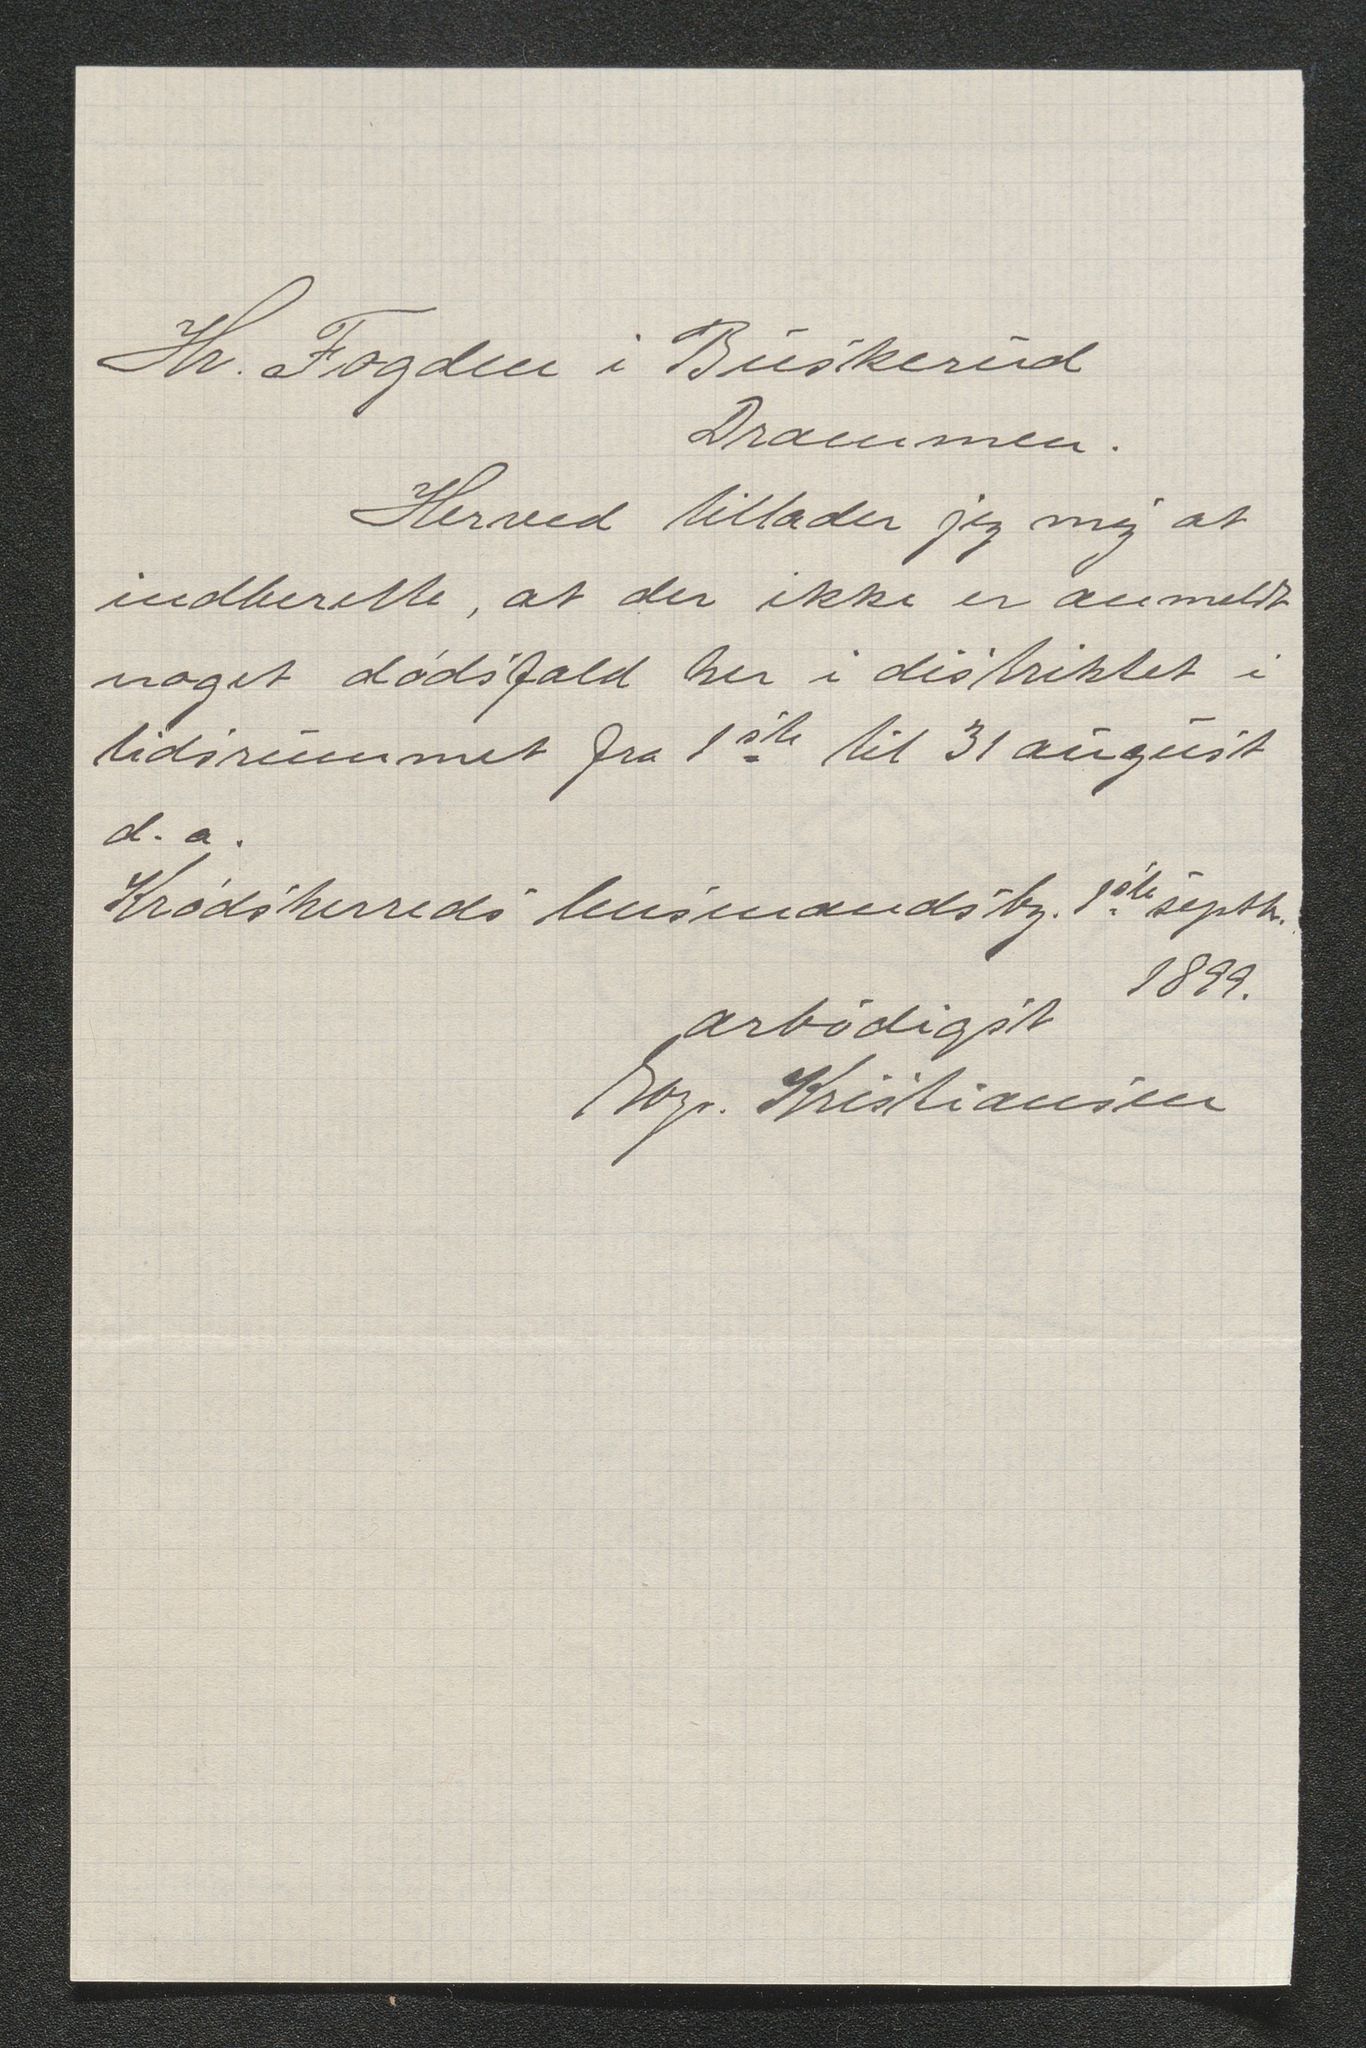 Hr. Fogden i Buskerud
Drammen.
Herved tillader jeg mig at
indberette, at der ikke er anmeldt
noget dødsfald her i distriktet i
tidsrummet fra 1ste til 31 august
d. a.
Krødsherreds lensmandsbg. 1ste septbr.
1899.
ærbødigst
Kristiansen